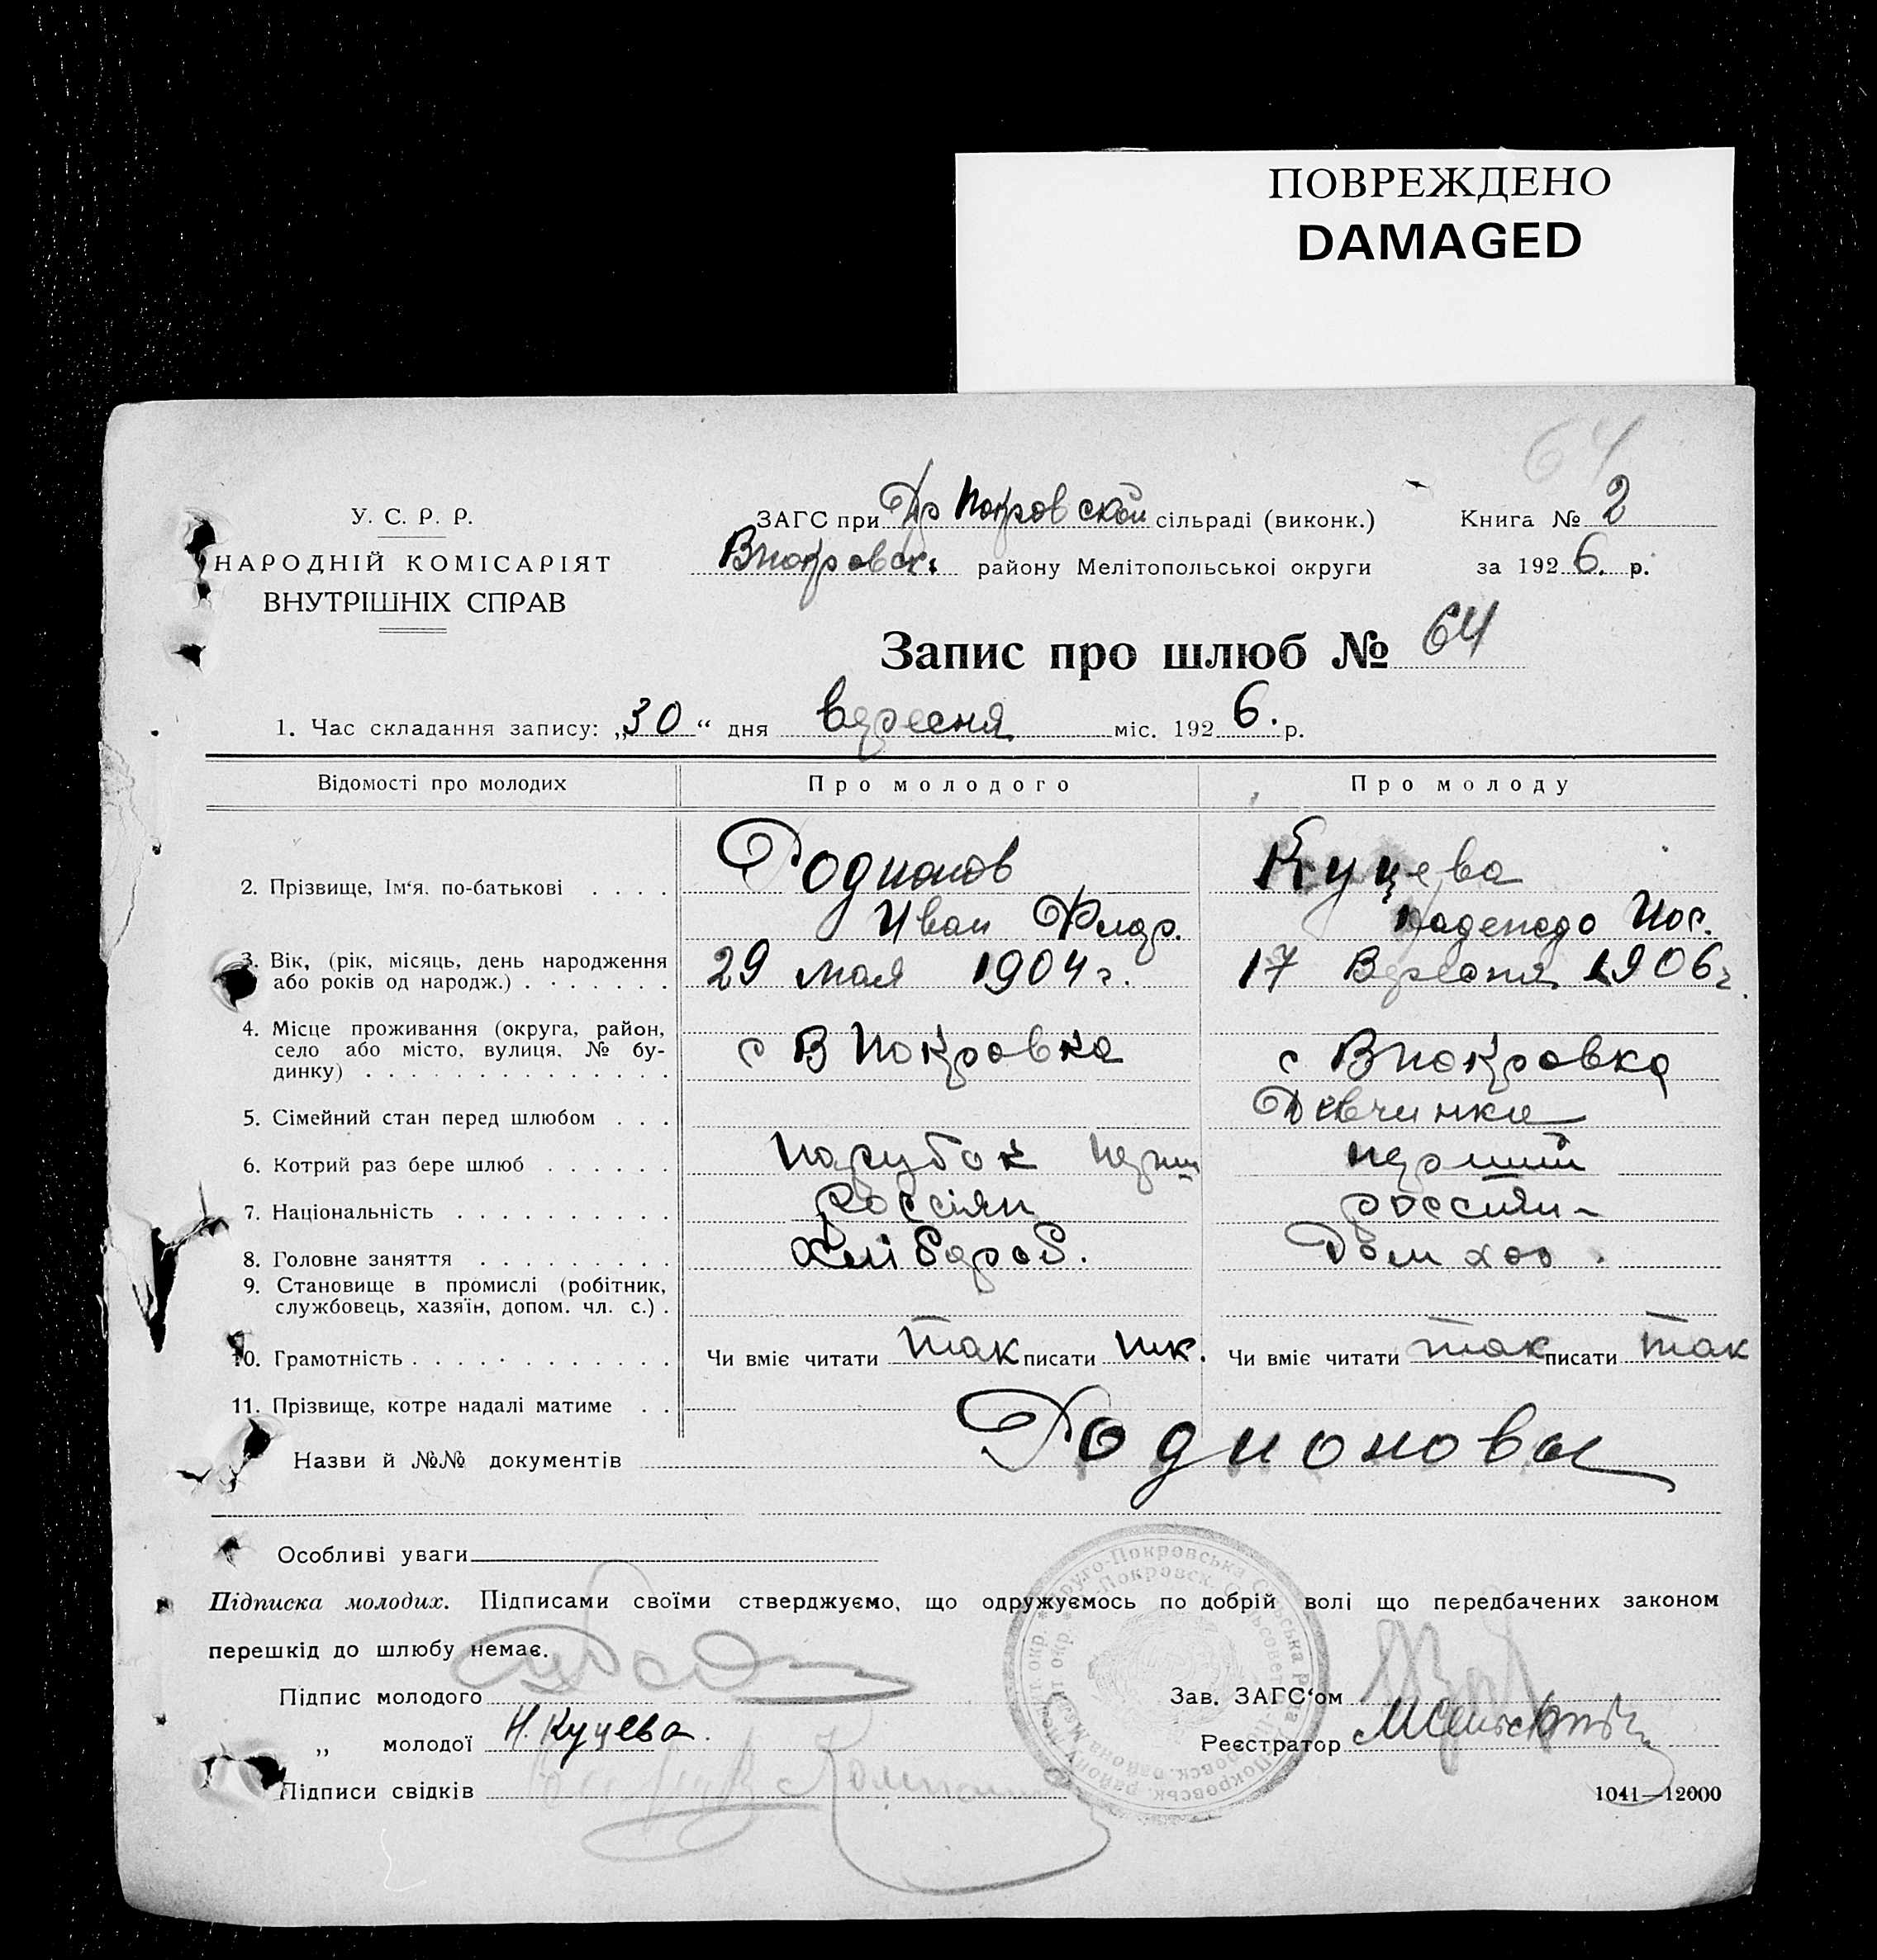 ПОВРЕЖДЕНО
DAMAGED
64
У. С. Р. Р.
НАРОДНІЙ КОМІСАРІЯТ
ВНУТРІШНІХ СПРАВ
ЗАГС при Др Покровской сільраді (виконк.)
Впокровск. району Мелітопольської округи
Книга № 2
за 1926. р.
Запис про шлюб № 64
1. Час складання запису: „30“ дня вересня міс. 1926. р.
Відомості про молодих Про молодого Про молоду
2. Прізвище, Ім‘я, по-батькові . . . . Родионов Куцева
Иван Надежда Иос.
3. Вік, (рік, місяць, день народження
або років од народж.) . . . . . . . 29 мая 1904 г. 17 Вересня 1906 г.
4. Місце проживання (округа, район,
село або місто, вулиця, № бу-
динку) . . . . . . . . . . . . . . с В Покровка с Впокровка
5. Сімейний стан перед шлюбом . . . Дівчинка
6. Котрий раз бере шлюб . . . . . . Парубок перш перший
7. Національність . . . . . . . . . . Россіян россиян
8. Головне заняття . . . . . . . . . Хлібороб. Дом хоз.
9. Становище в промислі (робітник,
службовець, хазяїн, допом. чл. с.) .
10. Грамотність . . . . . . . . . . . . Чи вміє читати так писати тк. Чи вміє читати так писати так
11. Прізвище, котре надалі матиме . . Родионовы
Назви й №№ документів
Особливі уваги
Підписка молодих. Підписами своїми стверджуємо, що одружуємось по добрій волі що передбачених законом
перешкід до шлюбу немає.
Підпис молодого
„ молодої Н. Куцева.
Підписи свідків
Зав. ЗАГС‘ом
Реєстратор
1041—12000